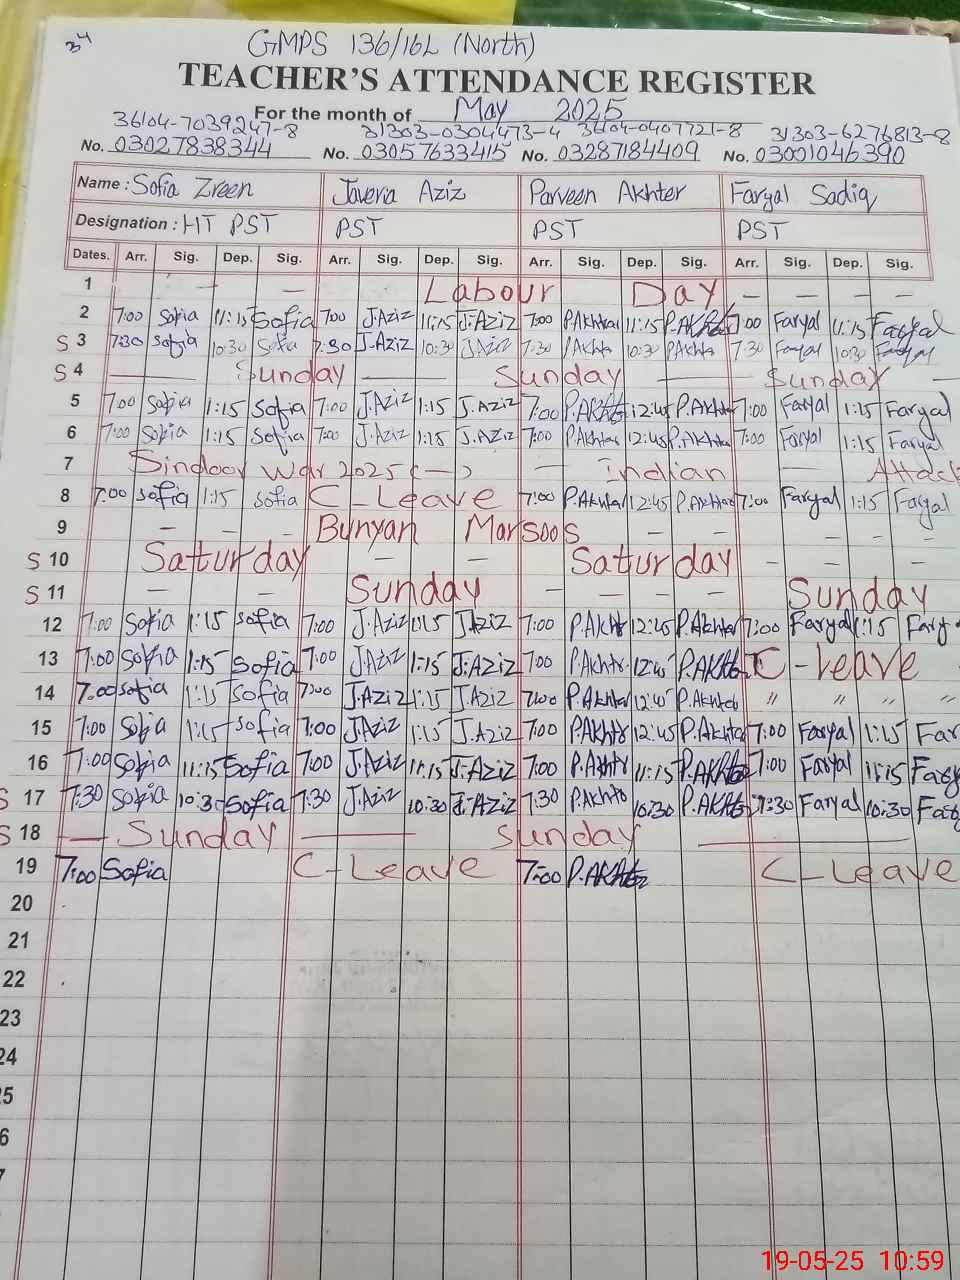 34
GMPS 136/16L (North)
TEACHER'S ATTENDANCE REGISTER
For the month of May 2025
36104-7039247-8 31303-0304473-4 36104-0407721-8 31303-6276813-8
No. 03027838344 No. 03057633415 No. 03287184409 No. 03001046390
Name : Sofia Zreen Javeria Aziz Parveen Akhter Faryal Sadiq
Designation : HT PST PST PST PST
Dates. Arr. Sig. Dep. Sig. Arr. Sig. Dep. Sig. Arr. Sig. Dep. Sig. Arr. Sig. Dep. Sig.
1 — — Labour Day — — — —
2 7:00 Sofia 11:15 Sofia 7:00 J.Aziz 11:15 J.Aziz 7:00 P.Akhtar 11:15 P.Akhtar 7:00 Faryal 11:15 Faryal
S 3 7:30 Sofia 10:30 Sofia 7:30 J-Aziz 10:30 J.Aziz 7:30 P.Akhtar 10:30 P.Akhtar 7:30 Faryal 10:30 Faryal
S 4 — Sunday — — Sunday — Sunday —
5 7:00 Sofia 1:15 Sofia 7:00 J.Aziz 1:15 J.Aziz 7:00 P.Akhtar 12:45 P.Akhtar 7:00 Faryal 1:15 Faryal
6 7:00 Sofia 1:15 Sofia 7:00 J.Aziz 1:15 J.Aziz 7:00 P.Akhtar 12:45 P.Akhtar 7:00 Faryal 1:15 Faryal
7 Sindoor War 2025 (—) — Indian — Attack
8 7:00 Sofia 1:15 Sofia C-Leave 7:00 P.Akhtar 12:45 P.Akhtar 7:00 Faryal 1:15 Faryal
9 — — — Bunyan Marsoos — — — — —
S 10 Saturday — — Saturday — —
S 11 — — Sunday — — — — Sunday
12 7:00 Sofia 1:15 Sofia 7:00 J.Aziz 1:15 J.Aziz 7:00 P.Akhtr 12:45 P.Akhtar 7:00 Faryal 1:15 Fary
13 7:00 Sofia 1:15 Sofia 7:00 J.Aziz 1:15 J.Aziz 7:00 P.Akhtr 12:45 P.Akhtar C-Leave
14 7:00 Sofia 1:15 Sofia 7:00 J.Aziz 1:15 J.Aziz 7:00 P.Akhtar 12:45 P.Akhtar " " " "
15 7:00 Sofia 1:15 Sofia 7:00 J.Aziz 1:15 J.Aziz 7:00 P.Akhtr 12:45 P.Akhtar 7:00 Faryal 1:15 Far
16 7:00 Sofia 11:15 Sofia 7:00 J.Aziz 11:15 J.Aziz 7:00 P.Akhtr 11:15 P.Akhtar 7:00 Faryal 11:15 Fary
S 17 7:30 Sofia 10:30 Sofia 7:30 J.Aziz 10:30 J.Aziz 7:30 P.Akhtr 10:30 P.Akhtar 7:30 Faryal 10:30 Fary
S 18 — Sunday — Sunday —
19 7:00 Sofia C-Leave 7:00 P.Akhtar C-Leave
20
21
22
23
24
5
6
7
19-05-25 10:59